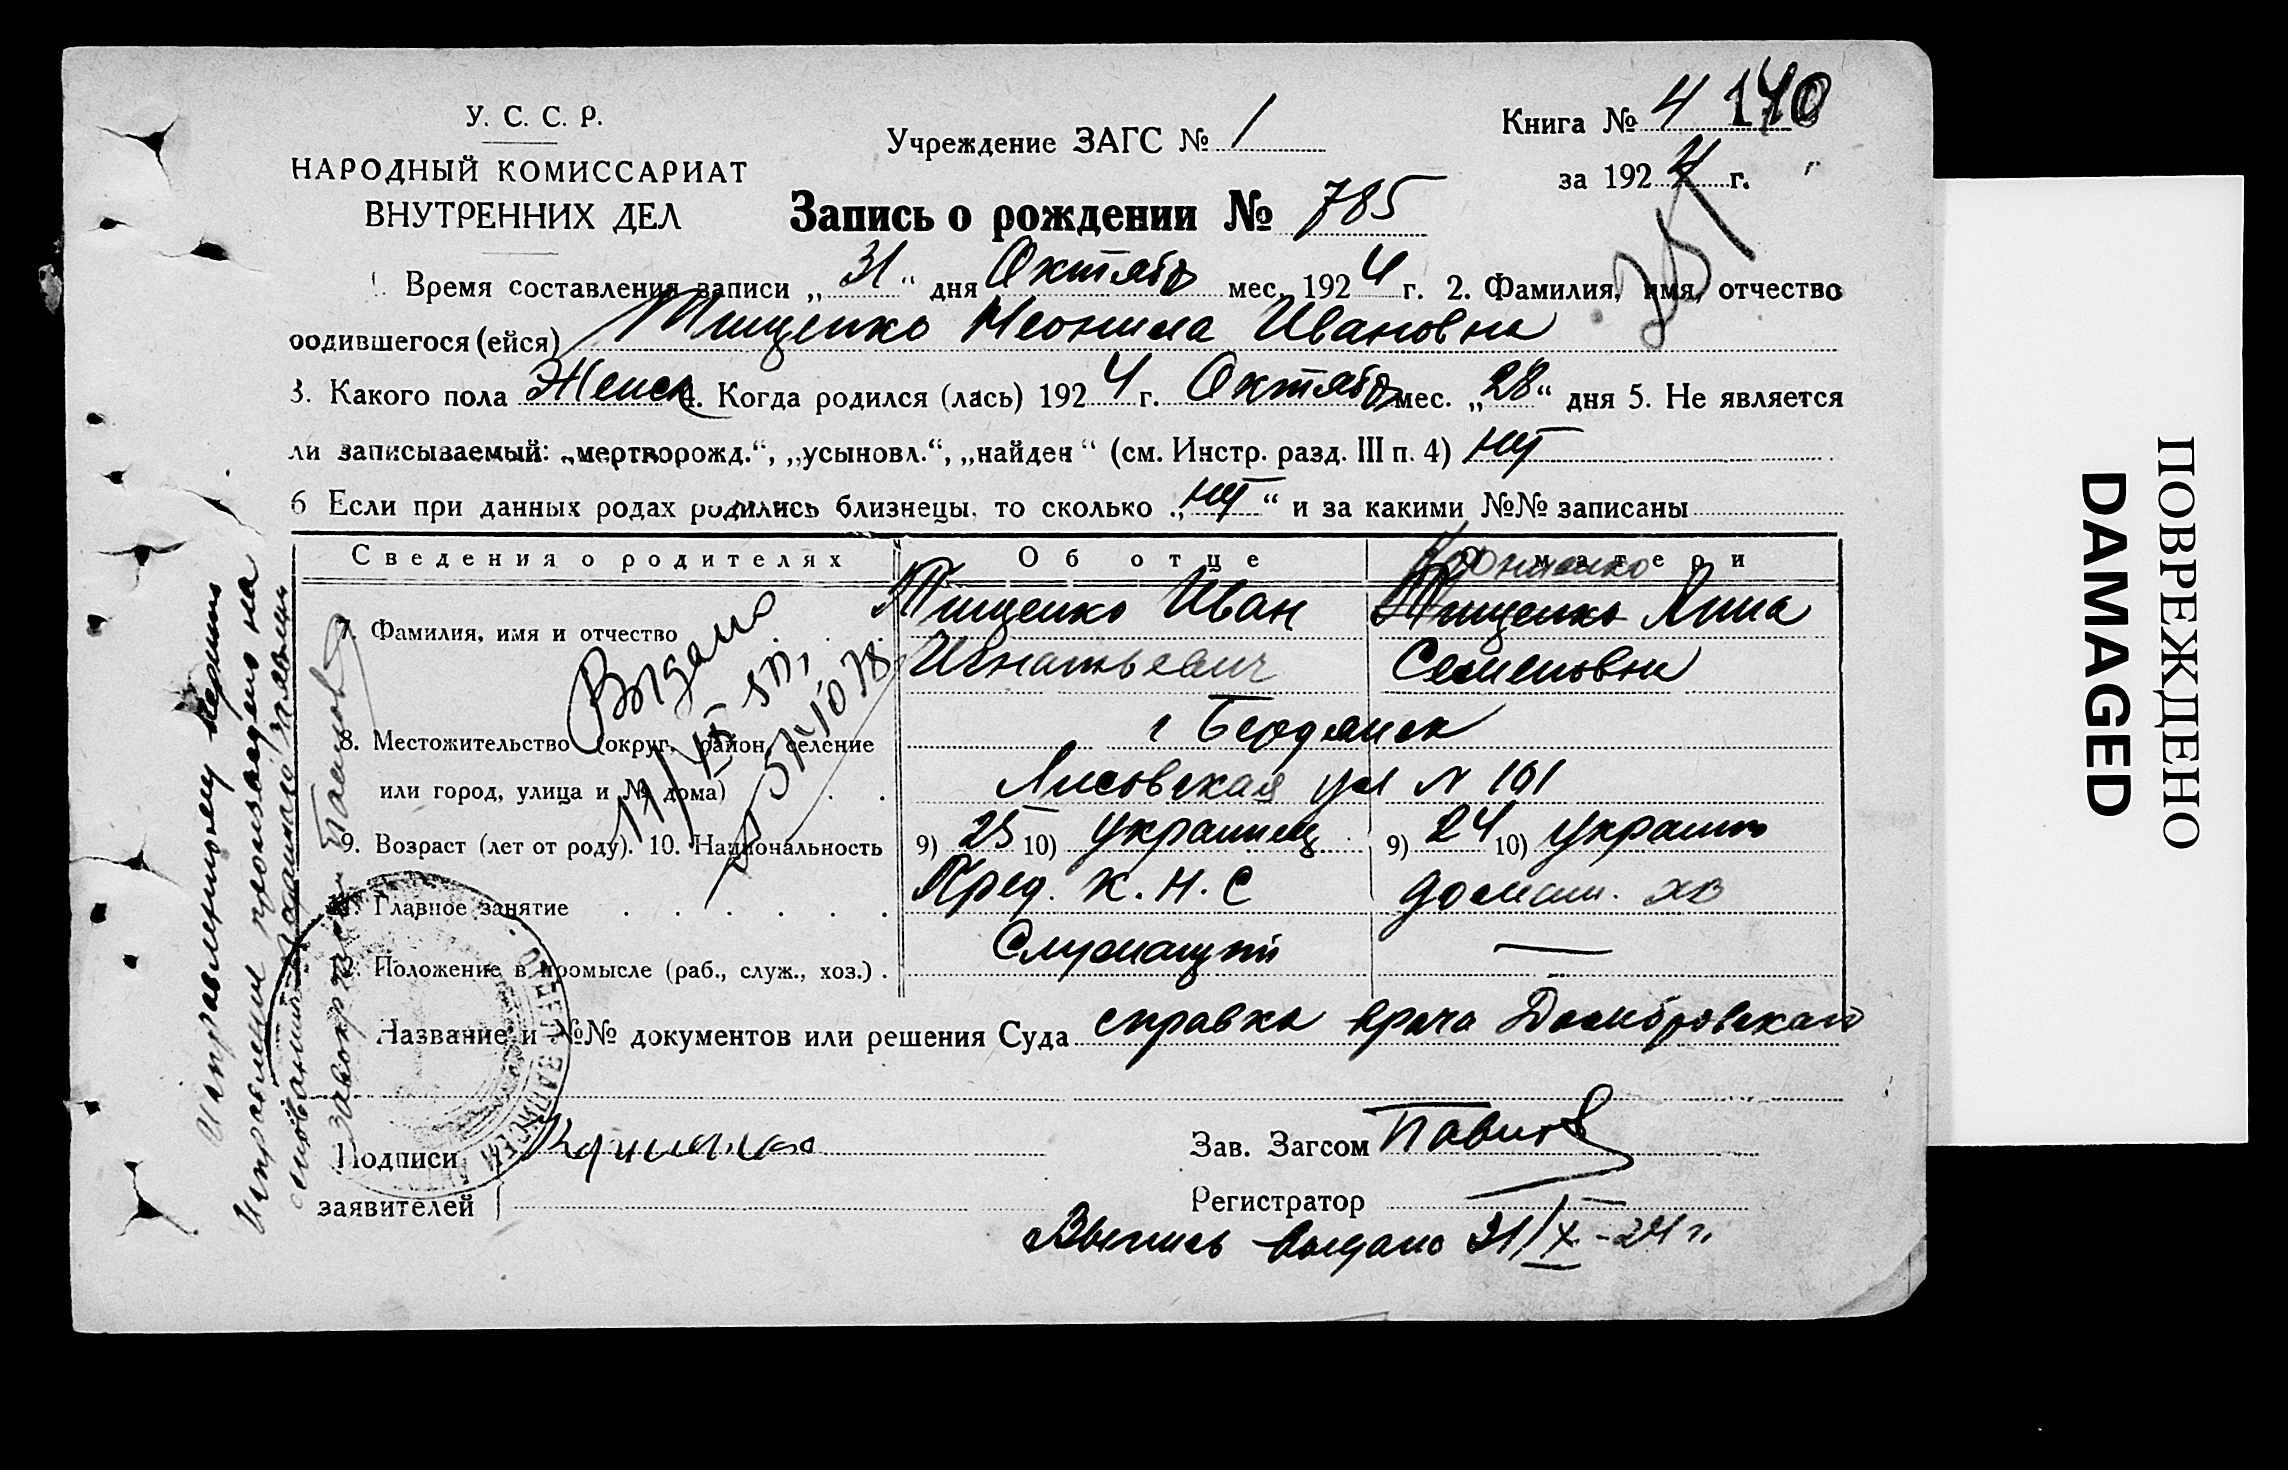 У. С. С. Р.
НАРОДНЫЙ КОМИССАРИАТ
ВНУТРЕННИХ ДЕЛ
Учреждение ЗАГС № 1
Книга № 4 140
за 1924 г.
Запись о рождении № 785
1. Время составления записи „31“ дня Октябр мес. 1924 г. 2. Фамилия, имя, отчество
родившегося (ейся) Тищенко Неонила Ивановна
3. Какого пола Женск 4. Когда родился (лась) 1924 г. Октябр мес. „28“ дня 5. Не является
ли записываемый: „мертворожд.“, „усыновл.“, „найден“ (см. Инстр. разд. III п. 4) нет
6 Если при данных родах родились близнецы, то сколько „нет“ и за какими №№ записаны
Сведения о родителях Об отце О матери
Корниенко
7. Фамилия, имя и отчество Тищенко Иван Тищенко Анна
Игнатьевич Семеновна
8. Местожительство (округ, район, селение г Бердянск
или город, улица и № дома) Лисовская ул № 101
9. Возраст (лет от роду). 10. Национальность 9) 25 10) украинец 9) 24 10) украин
11. Главное занятие Пред. К. Н. С домаш. хоз
12. Положение в промысле (раб., служ., хоз.) Служащий —
Название и №№ документов или решения Суда справка врача Домбровскаго
Подписи
заявителей
Зав. Загсом
Регистратор
Выпись выдано 31/X-24 г.
Выдано
Исправленному верить
Исправление произведено на
основании
ПОВРЕЖДЕНО
DAMAGED